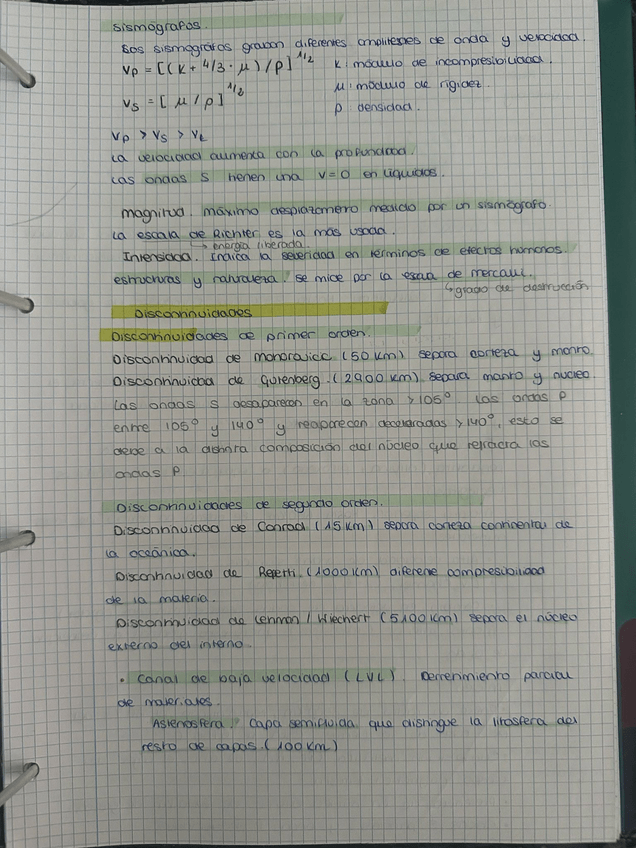 sismógrafos.
Los sismógrafos graban diferentes amplitudes de onda y velocidad.
Vp = [(K + 4/3 · μ) / ρ]^1/2 K: módulo de incompresibilidad.
Vs = [μ / ρ]^1/2 μ: módulo de rigidez.
ρ densidad.
Vp > Vs > VL
La velocidad aumenta con la profundidad.
Las ondas S tienen una V=0 en líquidos.
Magnitud. máximo desplazamiento medido por un sismógrafo
La escala de Richter es la más usada.
↳ energía liberada.
Intensidad. Indica la severidad en términos de efectos humanos.
estructuras y naturaleza. se mide por la escala de mercalli.
↳ grado de destrucción
Discontinuidades
Discontinuidades de primer orden.
Discontinuidad de mohorovicic (50 km) separa corteza y manto.
Discontinuidad de Gutenberg. (2900 km) separa manto y núcleo
Las ondas S desaparecen en la zona >105°. Las ondas P
entre 105° y 140° y reaparecen deceleradas >140°, esto se
debe a la distinta composición del núcleo que refracta las
ondas P
Discontinuidades de segundo orden.
Discontinuidad de Conrad (15 km) separa corteza continental de
la oceánica.
Discontinuidad de Repetti. (1000 km) diferente compresibilidad
de la materia.
Discontinuidad de Lehman / Wiechert (5100 km) separa el núcleo
externo del interno.
• Canal de baja velocidad (LVL). Derretimiento parcial
de materiales.
Astenosfera. Capa semifluida que distingue la litosfera del
resto de capas. (100 km)